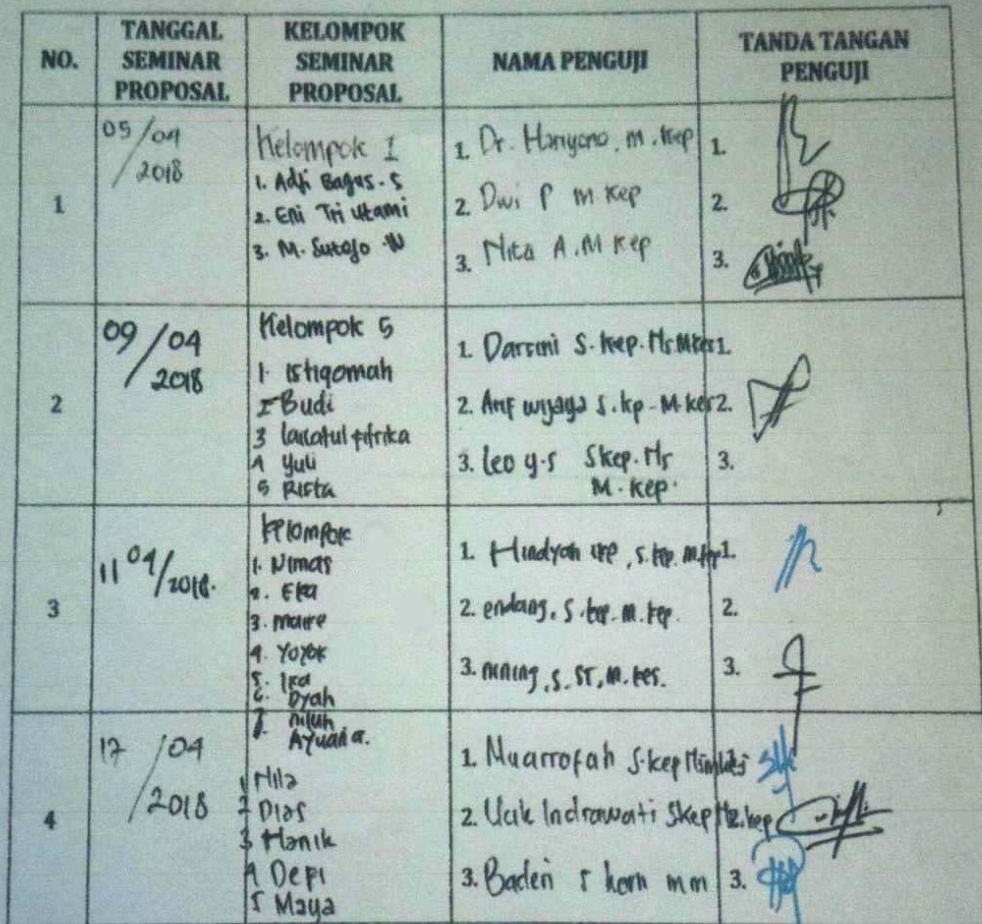 NO.
TANGGAL
SEMINAR
PROPOSAL
KELOMPOK
SEMINAR
PROPOSAL
NAMA PENGUJI
TANDA TANGAN
PENGUJI
1
05/04
2018
Kelompok 1
1. Adji Bagus. S
2. Eni Tri Utami
3. M. Sutojo .W
1. Dr. Hariyono, M. Kep
2. Dwi P M Kep
3. Nita A. M Kep
1.
2.
3.
2
09/04
2018
Kelompok 5
1. Istiqomah
2 Budi
3 lailatul fitrika
4 Yuli
5 Rista
1. Darsini S. Kep. Ns. M.Kes
2. Arif wijaya S. Kp - M. Kes
3. Leo Y.S Skep. Ns
M. Kep.
1.
2.
3.
3
11 04/2018.
Kelompok
1. Nimas
2. Eka
3. Marre
4. Yoyok
5. Ika
6. Dyah
7. niluh
Ayuana.
1. Hindyah, S. Kep. M. Kep
2. endang, S. Kep. M. Kep.
3. nining, S. ST, M. Kes.
1.
2.
3.
4
17/04
2018
1 Nila
2 Dias
3 Hanik
4 Depi
5 Maya
1. Muarrofah S.Kep Ns
2. Ucik Indrawati Skep Ns
3. Baderi S kom mm
2.
3.